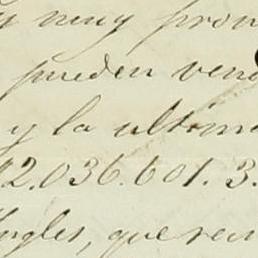 y muy pron
pueden vend
y la ultima
12.036.601.3.
Ingles, que se un